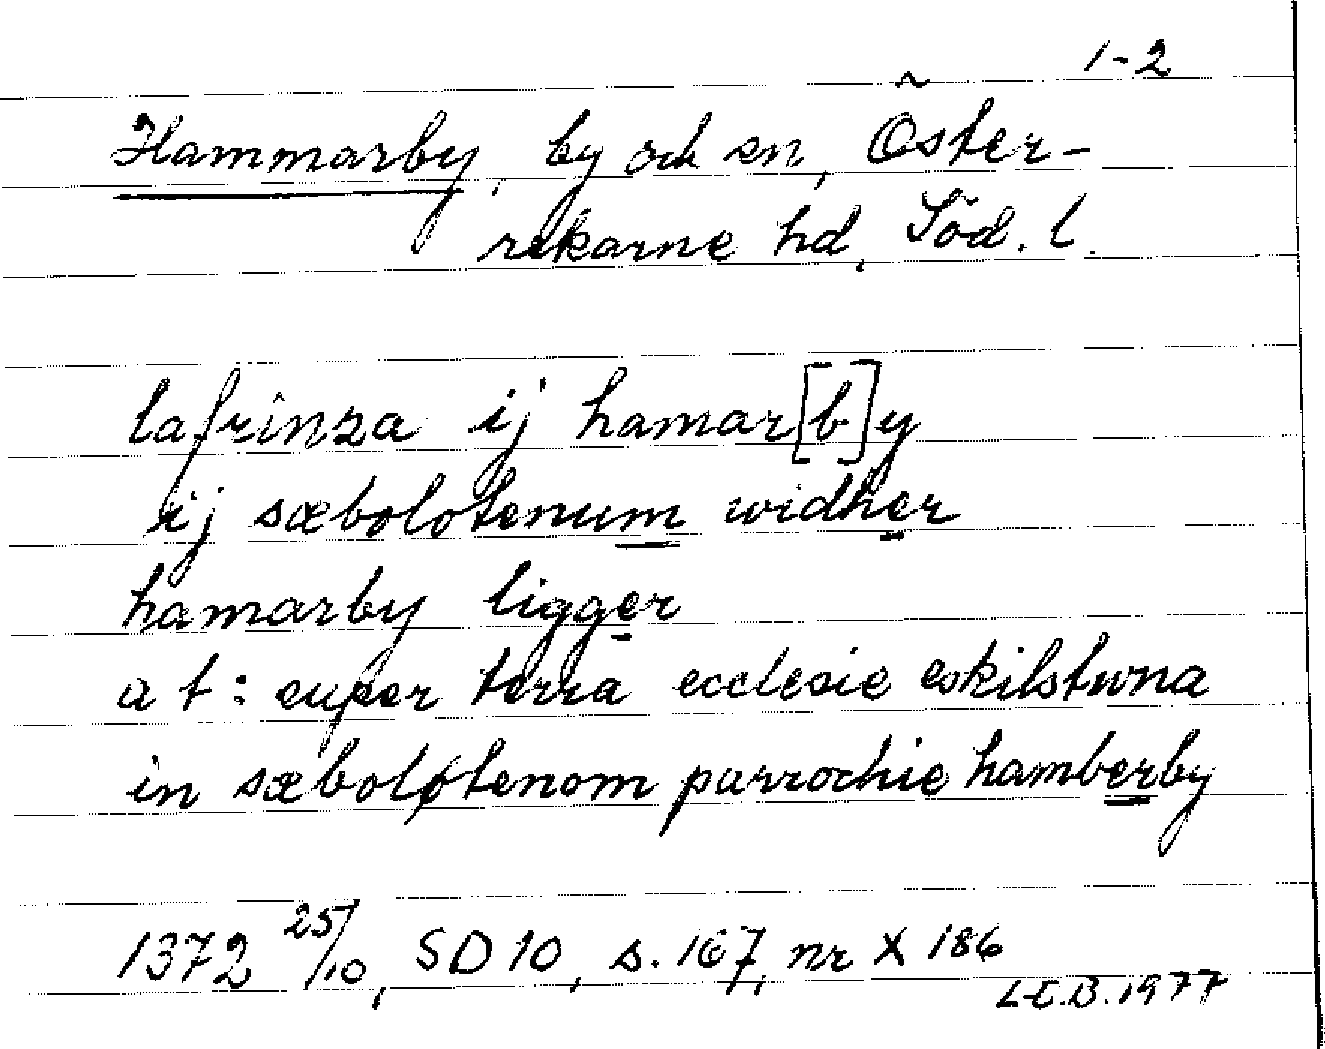 1-2
Hammarby, by och sn, Öster-
rekarne hd, Söd. l.
lafrinza ij hamar[b]y
ij sæbolotenum widher
hamarby ligger
at: super terra ecclesie eskilstwna
in sæboløtenom parrochie hamberby
1372 25/10, SD 10, s. 167, nr X 186
L-E.B. 1977